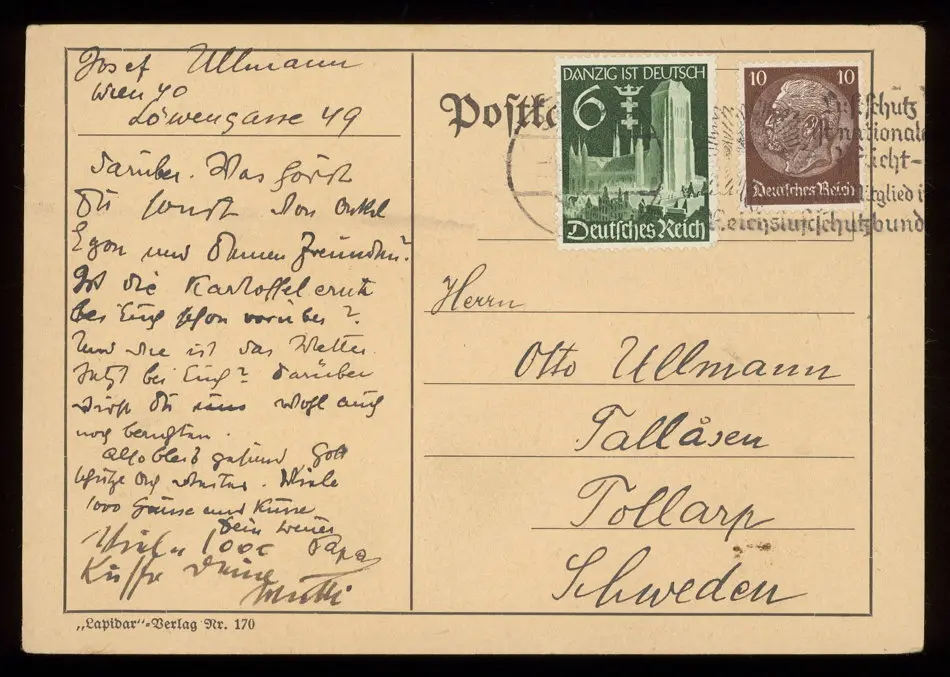 Josef Ullmann
Wien 40
Löwengasse 49
darüber. Was hörst
Du sonst von Onkel
Egon und Freundin?
Ist die Kartoffelernte
bei Euch schon vorüber?
Und wie ist das Wetter
jetzt bei Euch? Darüber
wirst Du uns wohl auch
noch berichten.
Also bleib gesund Gott
schütze Dich weiter. Viele
1000 Grüsse und Küsse
Dein treuer
Papa
Viele 1000
Küsse Deine
Mutti
„Lapidar"-Verlag Nr. 170
Postka
DANZIG IST DEUTSCH
6
Deutsches Reich
10 10
Deutsches Reich
Luftschutz
ist nationale
Pflicht-
Mitglied i
Reichsluftschutzbund
Herrn
Otto Ullmann
Tallåsen
Tollarp
Schweden